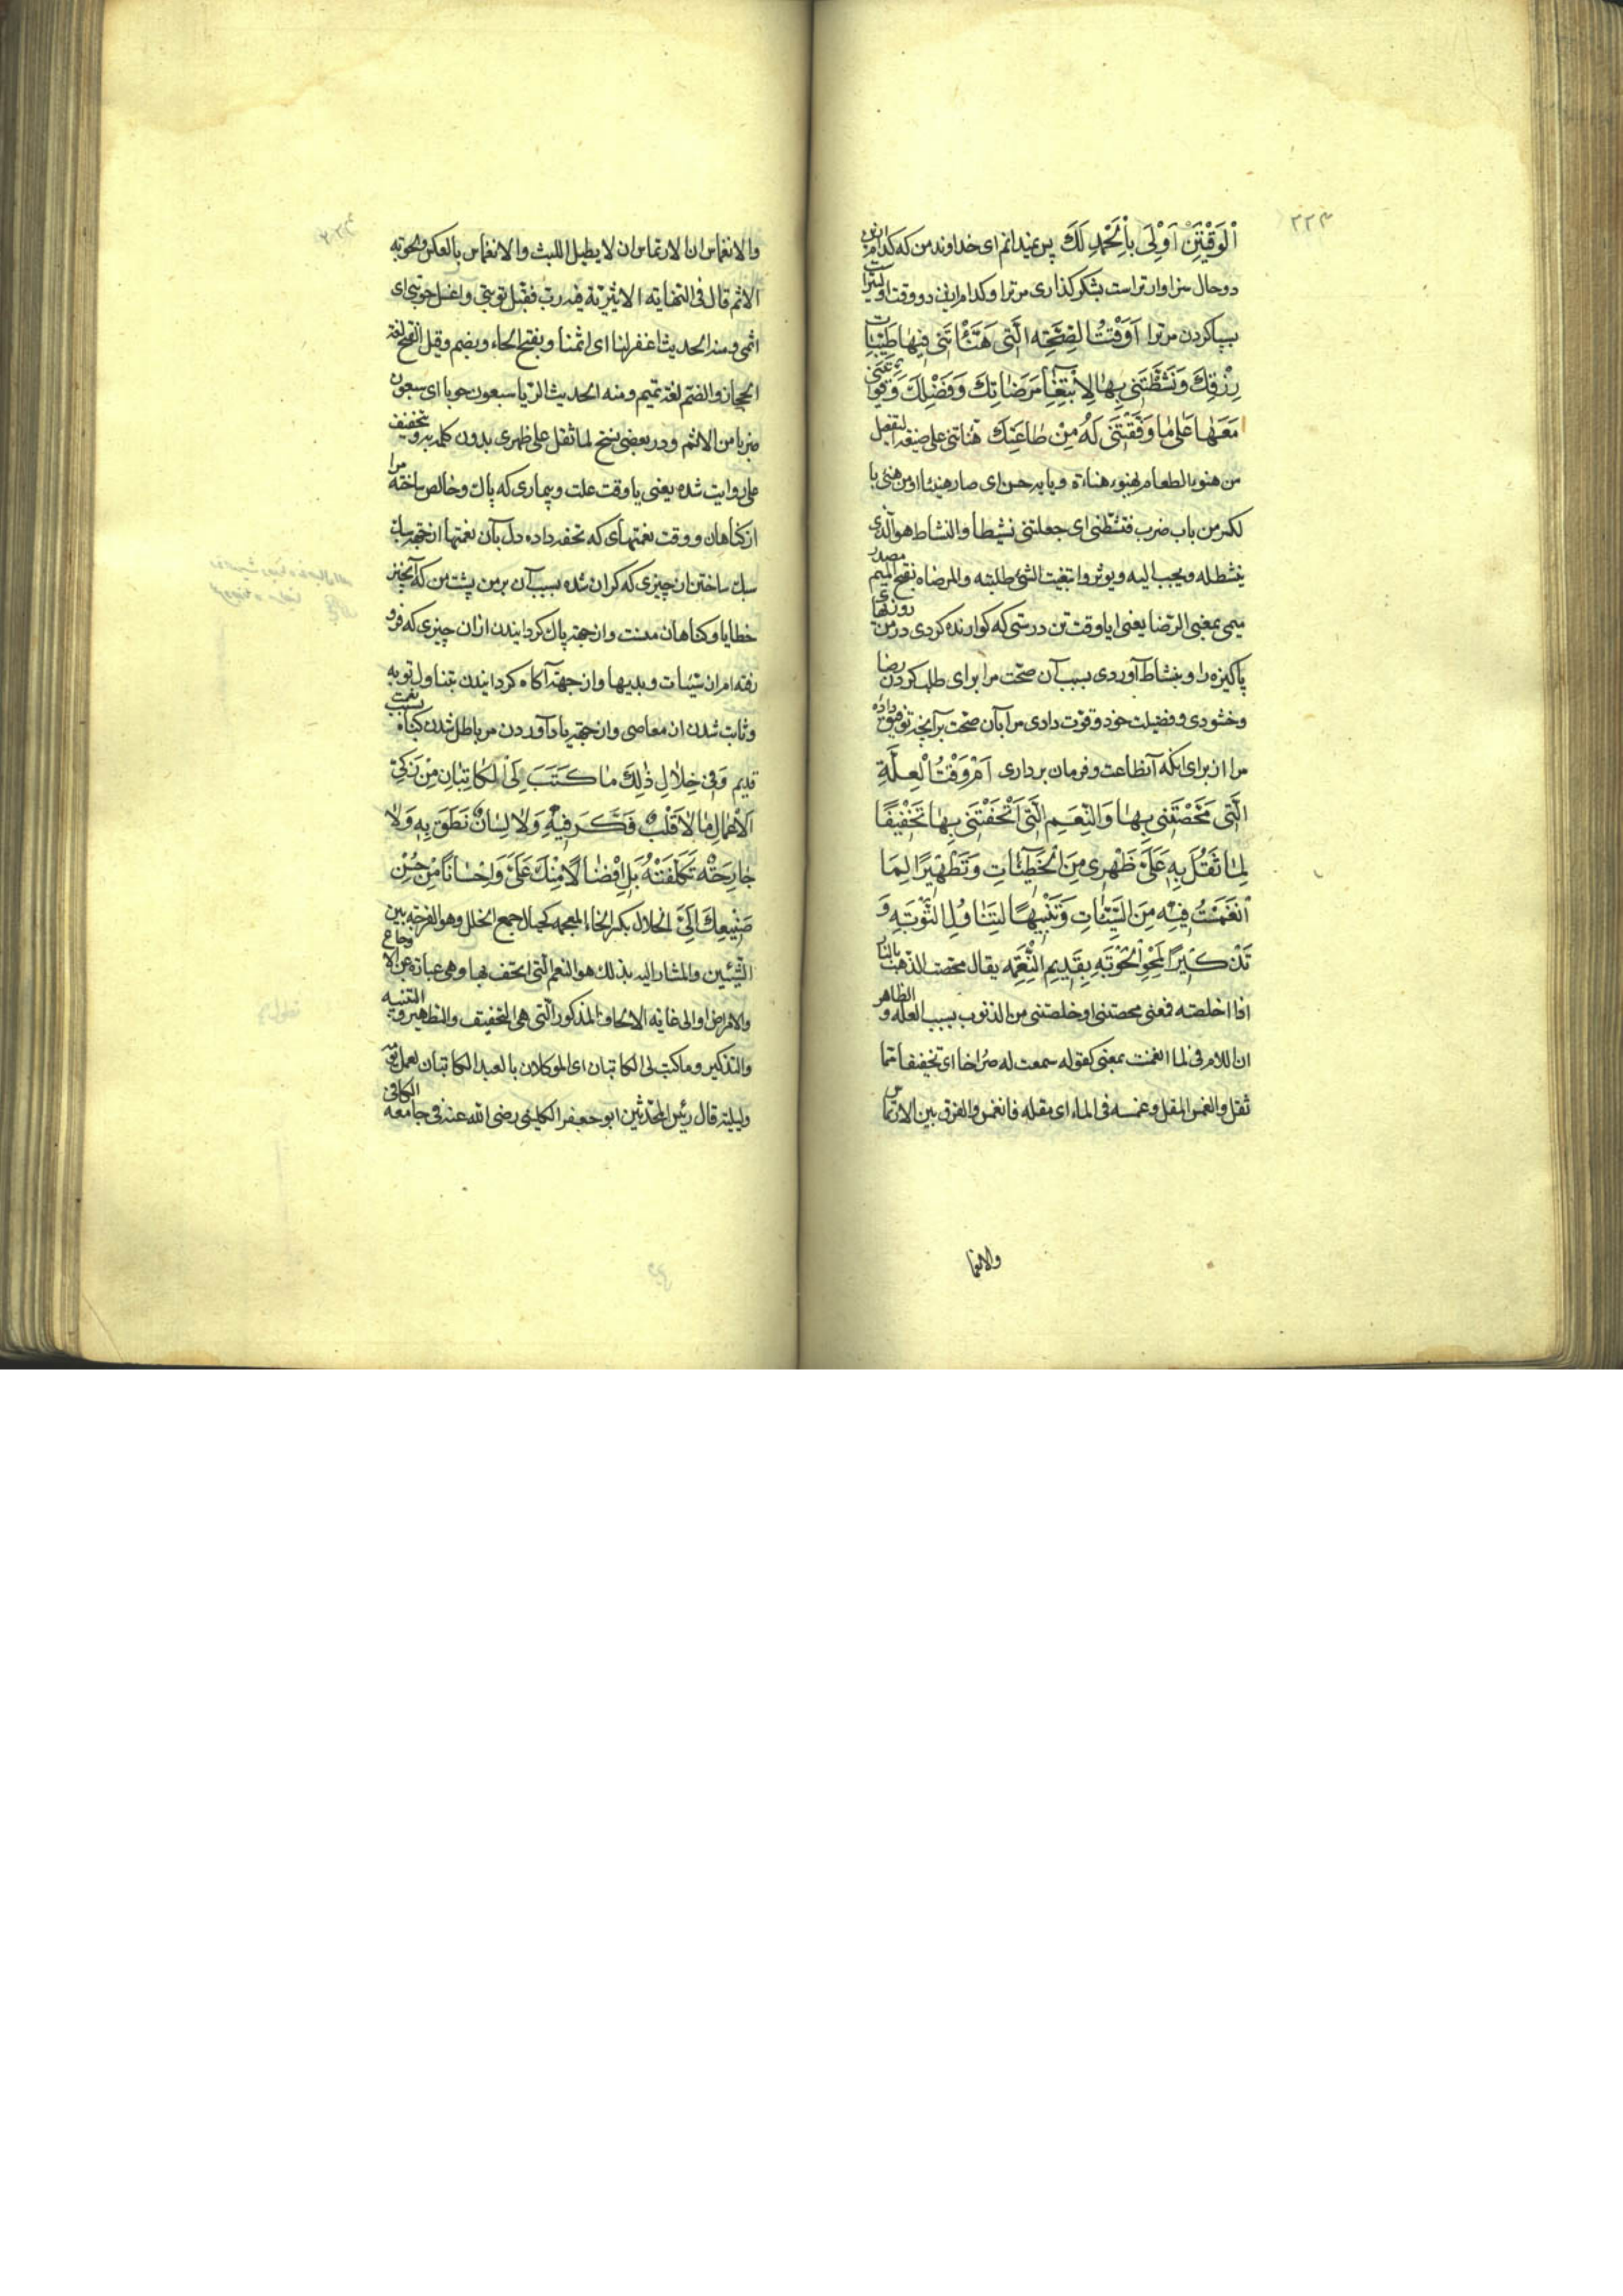 ۲۲۳
اَلْوَقْتَيْنِ اَوْلٰی بِالْحَمْدِ لَكَ پس نمیدانم ای خداوند من که کدام ازین
دو حال سزاوارتراست بشکر کذاری مر ترا و کدام از این دو وقت اولیتراست
سپاس کردن مر ترا اَوَقْتُ الصِّحَّةِ الَّتی هَنَّاْتَنی فیهٰا طَیِّبٰاتِ
رِزْقِكَ وَنَشَّطْتَنی بِهٰا لِابْتِغٰاءِ مَرْضٰاتِكَ وَفَضْلِكَ وَقَوَّیْتَنی
مَعَهٰا عَلیٰ مٰا وَفَّقْتَنی لَهُ مِنْ طٰاعَتِكَ هناتنی علی صیغه التفعیل
من هنوء الطعام یهنوء هناءة و بابه حسن ای صار هنیئا او من هنئ با
لکسر من باب ضرب فنشطنی ای جعلتنی نشیطا والنشاط هو الّذی
ینشط له و یجب الیه و یوثر و ابتغیت الشئ طلبته والمرضاه بفتح المیم مصدر
میمی بمعنی الرّضا یعنی ایا وقت تن درستی که کوارنده کردی در من روزیهای
پاکیزه را و بنشاط آوردی بسبب آن صحّت مرا برای طلب کردن رضا
وخشنودی و فضیلت خود و قوّت دادی مرا بآن صحّت بر آنچه توفیق داده
مرا از برای انکه آنطاعت و فرمان برداری اَمْ وَقْتُ الْعِلَّةِ
الَّتی مَحَّصْتَنی بِهٰا وَالنِّعَمِ الَّتی اَتْحَفْتَنی بِهٰا تَخْفیفًا
لِمٰا ثَقُلَ بِهِ عَلَیَّ ظَهْری مِنَ الْخَطیٓئٰاتِ وَتَطْهیرًا لِمَا
انْغَمَسْتُ فیهِ مِنَ السَّیِّئٰاتِ وَتَنْبیهًا لِتَنٰاوُلِ التَّوْبَةِ وَ
تَذْكیرًا لِمَحْوِ الْحَوْبَةِ بِقَدیمِ النِّعْمَةِ یقال محّصت الذهب بالنار
اذا اخلصته فمعنی محصتنی او خلصتنی من الذنوب بسبب العله و الظاهر
ان اللام فی لما انغمست بمعنی کقوله سمعت له صراخا ای تخفیفا مما
ثقل والغمس المقل وغمسه فی الماء ای مقله فانغمس والفرق بین الارتماس
والانغما
والانغماس ان الارتماس ان لا یطیل اللبث والانغماس بالعکس والحوبة
الاثم قال فی النهایه الاثیریّة فیه ربّ فتقبّل توبتی واغسل حوبتی ای
اثمی ومنه الحدیث اغفر لنا ای اثمنا وبفتح الحاء وبضم وقیل الفتح لغة
الحجاز والضمّ لغة تمیم ومنه الحدیث الرّبا سبعون حوبا ای سبعون
ضربا من الاثم و در بعضی نسخ لما ثقل علی ظهری بدون کلمه به و بتخفیف
علی روایت شده یعنی یا وقت علت و بیماری که پاك و خالص ساخته مرا
از کناهان و وقت نعمتهای که تحفه داده دل بآن نعمتها از جهة سبك
سبك ساختن از چیزی که کران شده بسبب آن بر من پشت من که آنچیز
خطایا و کناهان منست و از جهة پاك کردانیدن از ان چیزی که فرو
رفته ام از سیّئات و بدیها و از جهة آکاه کردانیدن بتناول توبه
و ثابت شدن از معاصی و از جهة یاد آوردن مر باطل شدن کناه بسبب نعمت
قدیم وَفی خِلٰالِ ذٰلِكَ مٰا كَتَبَ لِیَ الْكٰاتِبٰانِ مِنْ زَكِیِّ
الْاَعْمٰالِ مٰا لٰا قَلْبٌ فَكَّرَ فیهِ وَلٰا لِسٰانٌ نَطَقَ بِهِ وَلٰا
جٰارِحَةٌ تَكَلَّفَتْهُ بَلْ اِفْضٰالًا مِنْكَ عَلَیَّ وَاِحْسٰانًا مِنْ حُسْنِ
صَنیعِكَ اِلَیَّ الخلال بکسر الخاء المعجمه کجبال جمع الخلل وهو الفرجة بین
الشّیئین والمشار الیه بذلك هو النعم الّتی اتحف بها وهی عبارة عن الاوجاع
والامراض او الی غایه الاتحاف المذکور الّتی هی التخفیف والتطهیر و التنبیه
والتذکیر و ما کتب لی الکاتبان ای الموکلان بالعبد الکاتبان لعمل
ولیلته قال رئیس المحدّثین ابو جعفر الکلینی رضی الله عنه فی جامعه الکافی